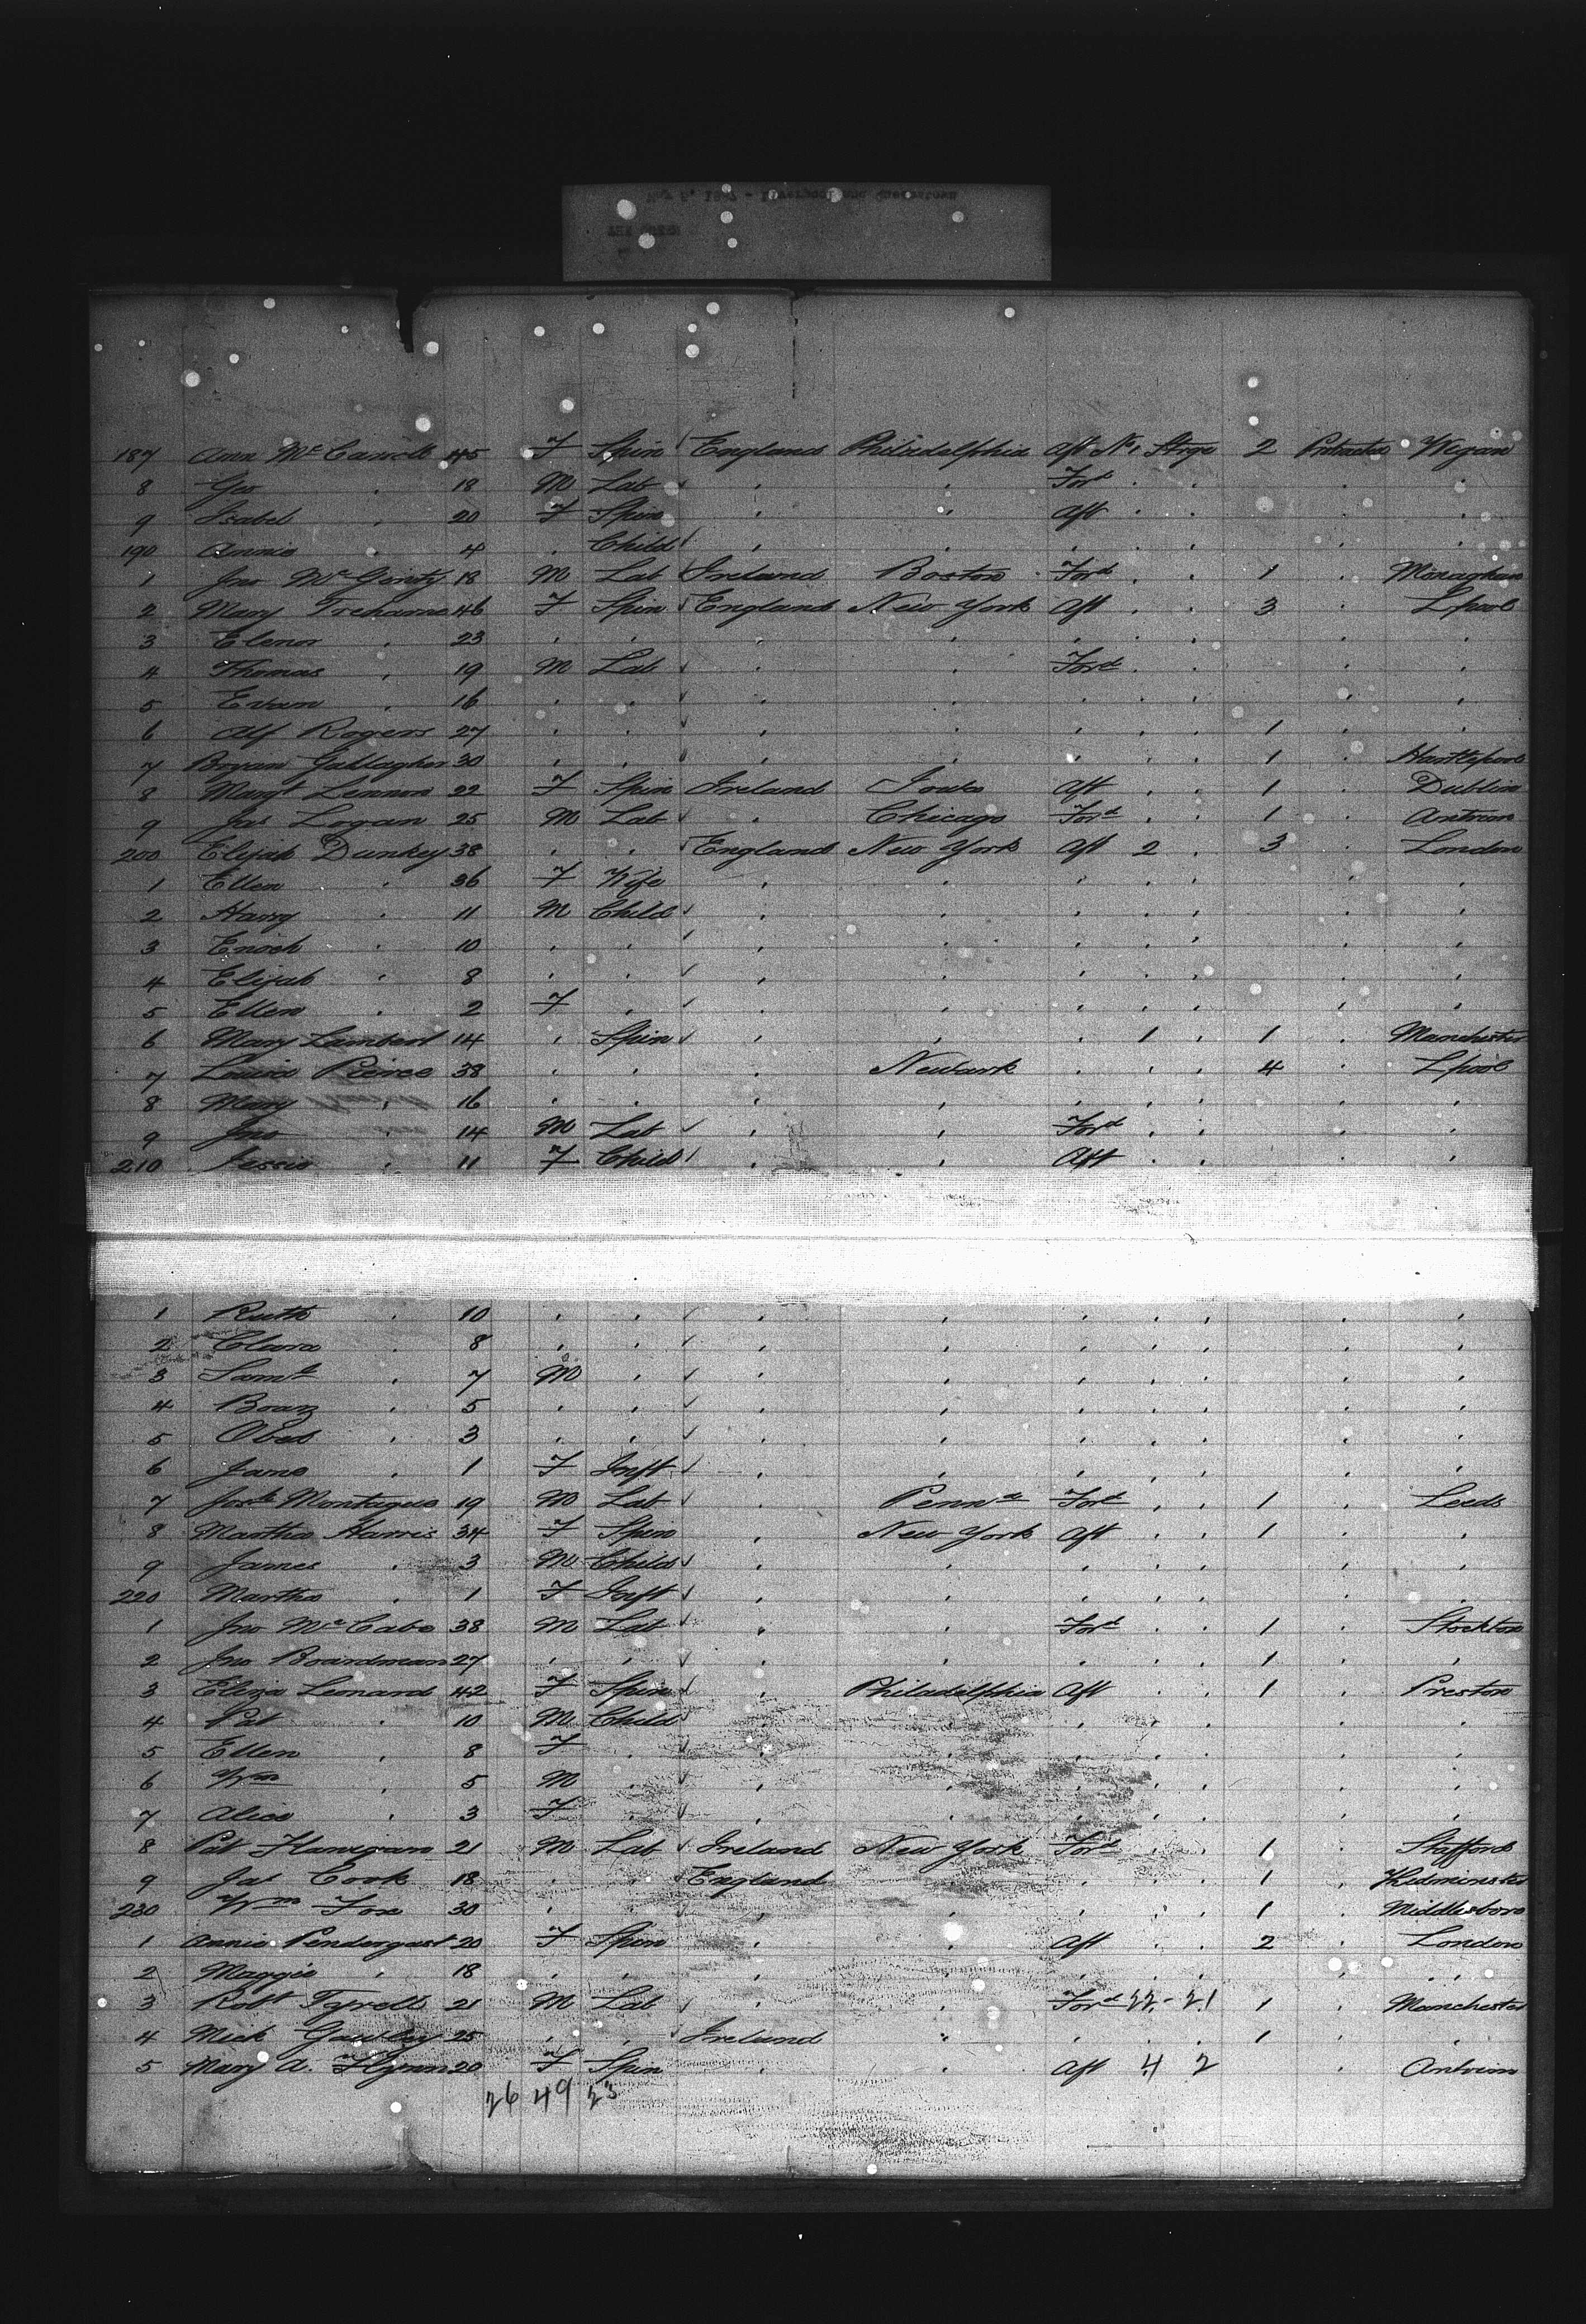 187 Ann McCarroll 45 F Spin England Philadelphia Aft No 1 Strge 2 Protracted Wigan
8 Geo " 18 M Lab " " Ford " " "
9 Isabel " 20 F Spin " " Aft " " "
190 Annie " 4 " Child " " " " " "
1 Jno McGinity 18 M Lab Ireland Boston Ford " " 1 " Monaghan
2 Mary Treharne 46 F Spin England New York Aft " " 3 " Lpool
3 Elenor " 23 " " " " " " " " "
4 Thomas " 19 M Lab " " Ford " " " "
5 Evan " 16 " " " " " " " " "
6 Alf Rogers 27 " " " " " " " 1 " "
7 Bryan Gallagher 30 " " " " " " " 1 " Hartlepool
8 Margt Lennon 22 F Spin Ireland Iowa Aft " " 1 " Dublin
9 Jas Logan 25 M Lab " Chicago Ford " " 1 " Antrim
200 Elijah Dunkey 38 " " England New York Aft 2 " 3 " London
1 Ellen " 36 F Wife " " " " " " "
2 Harry " 11 M Child " " " " " " "
3 Enoch " 10 " " " " " " " " "
4 Elijah " 8 " " " " " " " " "
5 Ellen " 2 F " " " " " " " "
6 Mary Lambert 14 " Spin " " " 1 " 1 " Manchester
7 Louisa Pierce 38 " " " Newark " " " 4 " Lpool
8 Mary " 16 " " " " " " " " "
9 Jno " 14 M Lab " " Ford " " " "
210 Jessie " 11 F Child " " Aft " " " "
1 Ruth " 10 " " " " " " " " "
2 Clara " 8 " " " " " " " " "
3 Saml " 7 M " " " " " " " "
4 Boaz " 5 " " " " " " " " "
5 Obed " 3 " " " " " " " " "
6 Jane " 1 F Inft " " " " " " "
7 Josh Montague 19 M Lab " Penna Ford " " 1 " Leeds
8 Martha Harris 34 F Spin " New York Aft " " 1 " "
9 James " 3 M Child " " " " " " "
220 Martha " 1 F Inft " " " " " " "
1 Jno McCabe 38 M Lab " " Ford " " 1 " Stockton
2 Jno Boardman 27 " " " " " " " 1 " "
3 Eliza Leonard 42 F Spin " Philadelphia Aft " " 1 " Preston
4 Pat " 10 M Child " " " " " " "
5 Ellen " 8 F " " " " " " " "
6 Wm " 5 M " " " " " " " "
7 Alice " 3 F " " " " " " " "
8 Pat Flanigan 21 M Lab Ireland New York Ford " " 1 " Stafford
9 Jas Cook 18 " " England " " " " 1 " Kidminster
230 Wm Fox 30 " " " " " " " 1 " Middlesboro
1 Annie Pendergast 20 F Spin " " Aft " " 2 " London
2 Maggie " 18 " " " " " " " " "
3 Robt Tyrell 21 M Lab " " Ford 22 - 21 1 " Manchester
4 Mick Gawley 25 " " Ireland " " " " 1 " "
5 Mary A. Flynn 20 F Spin " " Aft 4 2 " Antrim
26 49 23